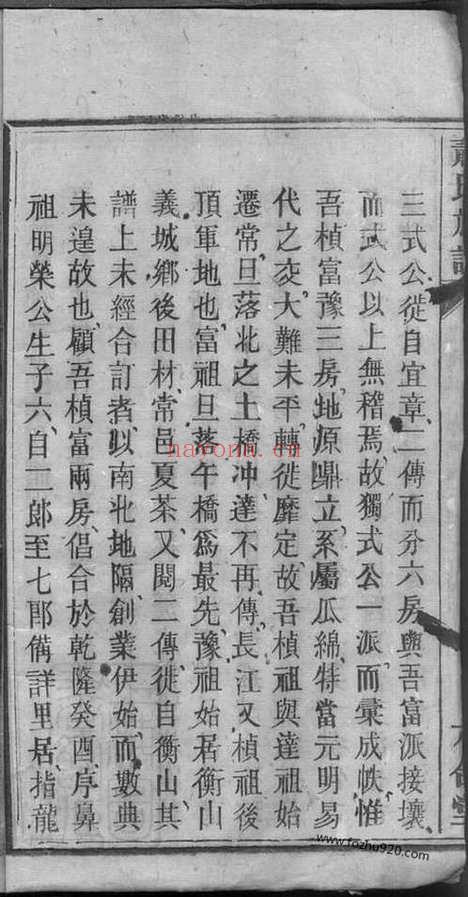 三式公從自宜章二傳而分六房與吾富派接壤
而式公以上無稽焉故獨式公一派而彙成帙惟
吾楨富豫三房地原鼎立系屬瓜綿特當元明易
代之交大難未平轉徙靡定故吾楨祖與達祖始
遷常旦落北之土橋冲達不再傳長江又楨祖後
頂軍地也富祖旦落午橋爲最先豫祖始居衡山
義城鄉後田材常邑夏茶又閱二傳徙自衡山其
譜上未經合訂者以南北地隔創業伊始而數典
未遑故也顧吾楨富兩房倡合於乾隆癸酉序鼻
祖明榮公生子六自二郎至七郎備詳里居指龍
nayona.cn
www.fozhu920.com